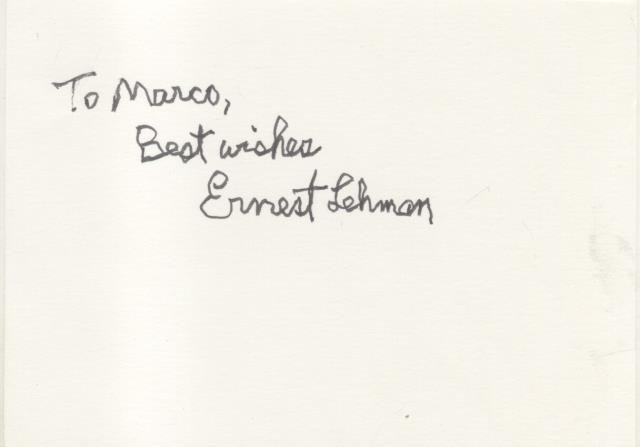 To Marco,
Best wishes
Ernest Lehman